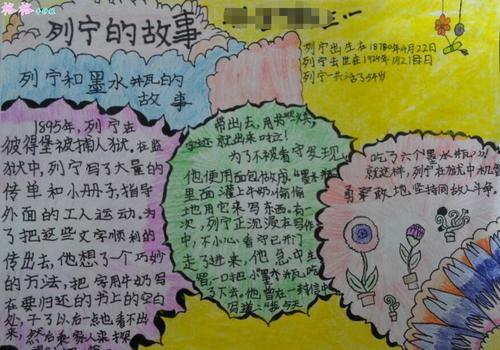 列宁的故事
列宁和墨水瓶的
故事
列宁出生在1870年4月22日
列宁去世在1924年1月21日
列宁一共活了54岁
1895年,列宁在
彼得堡被捕入狱。在监
狱中,列宁写了大量的
传单和小册子,指导
外面的工人运动。为
了把这些文字顺利的
传出去,他想了个巧妙
的方法,把字用牛奶写
在要归还的书上的空白
处,干了以后一点也看不出
来,然后
带出去,用
字迹就出来时立!
为了不被看守发现,
他使用面包做成"墨水瓶"
里面灌上牛奶,偷偷
地用它来写东西。有一
次,列宁正沉浸在写作
中,不小心,看守已开门
走了进来,他急中生
智,一口把小墨水瓶吃
了下去。他曾在一封信中
写道:"今天
吃了六个墨水瓶。"
就这样,列宁在狱中机智
勇敢地坚持同敌人斗争。